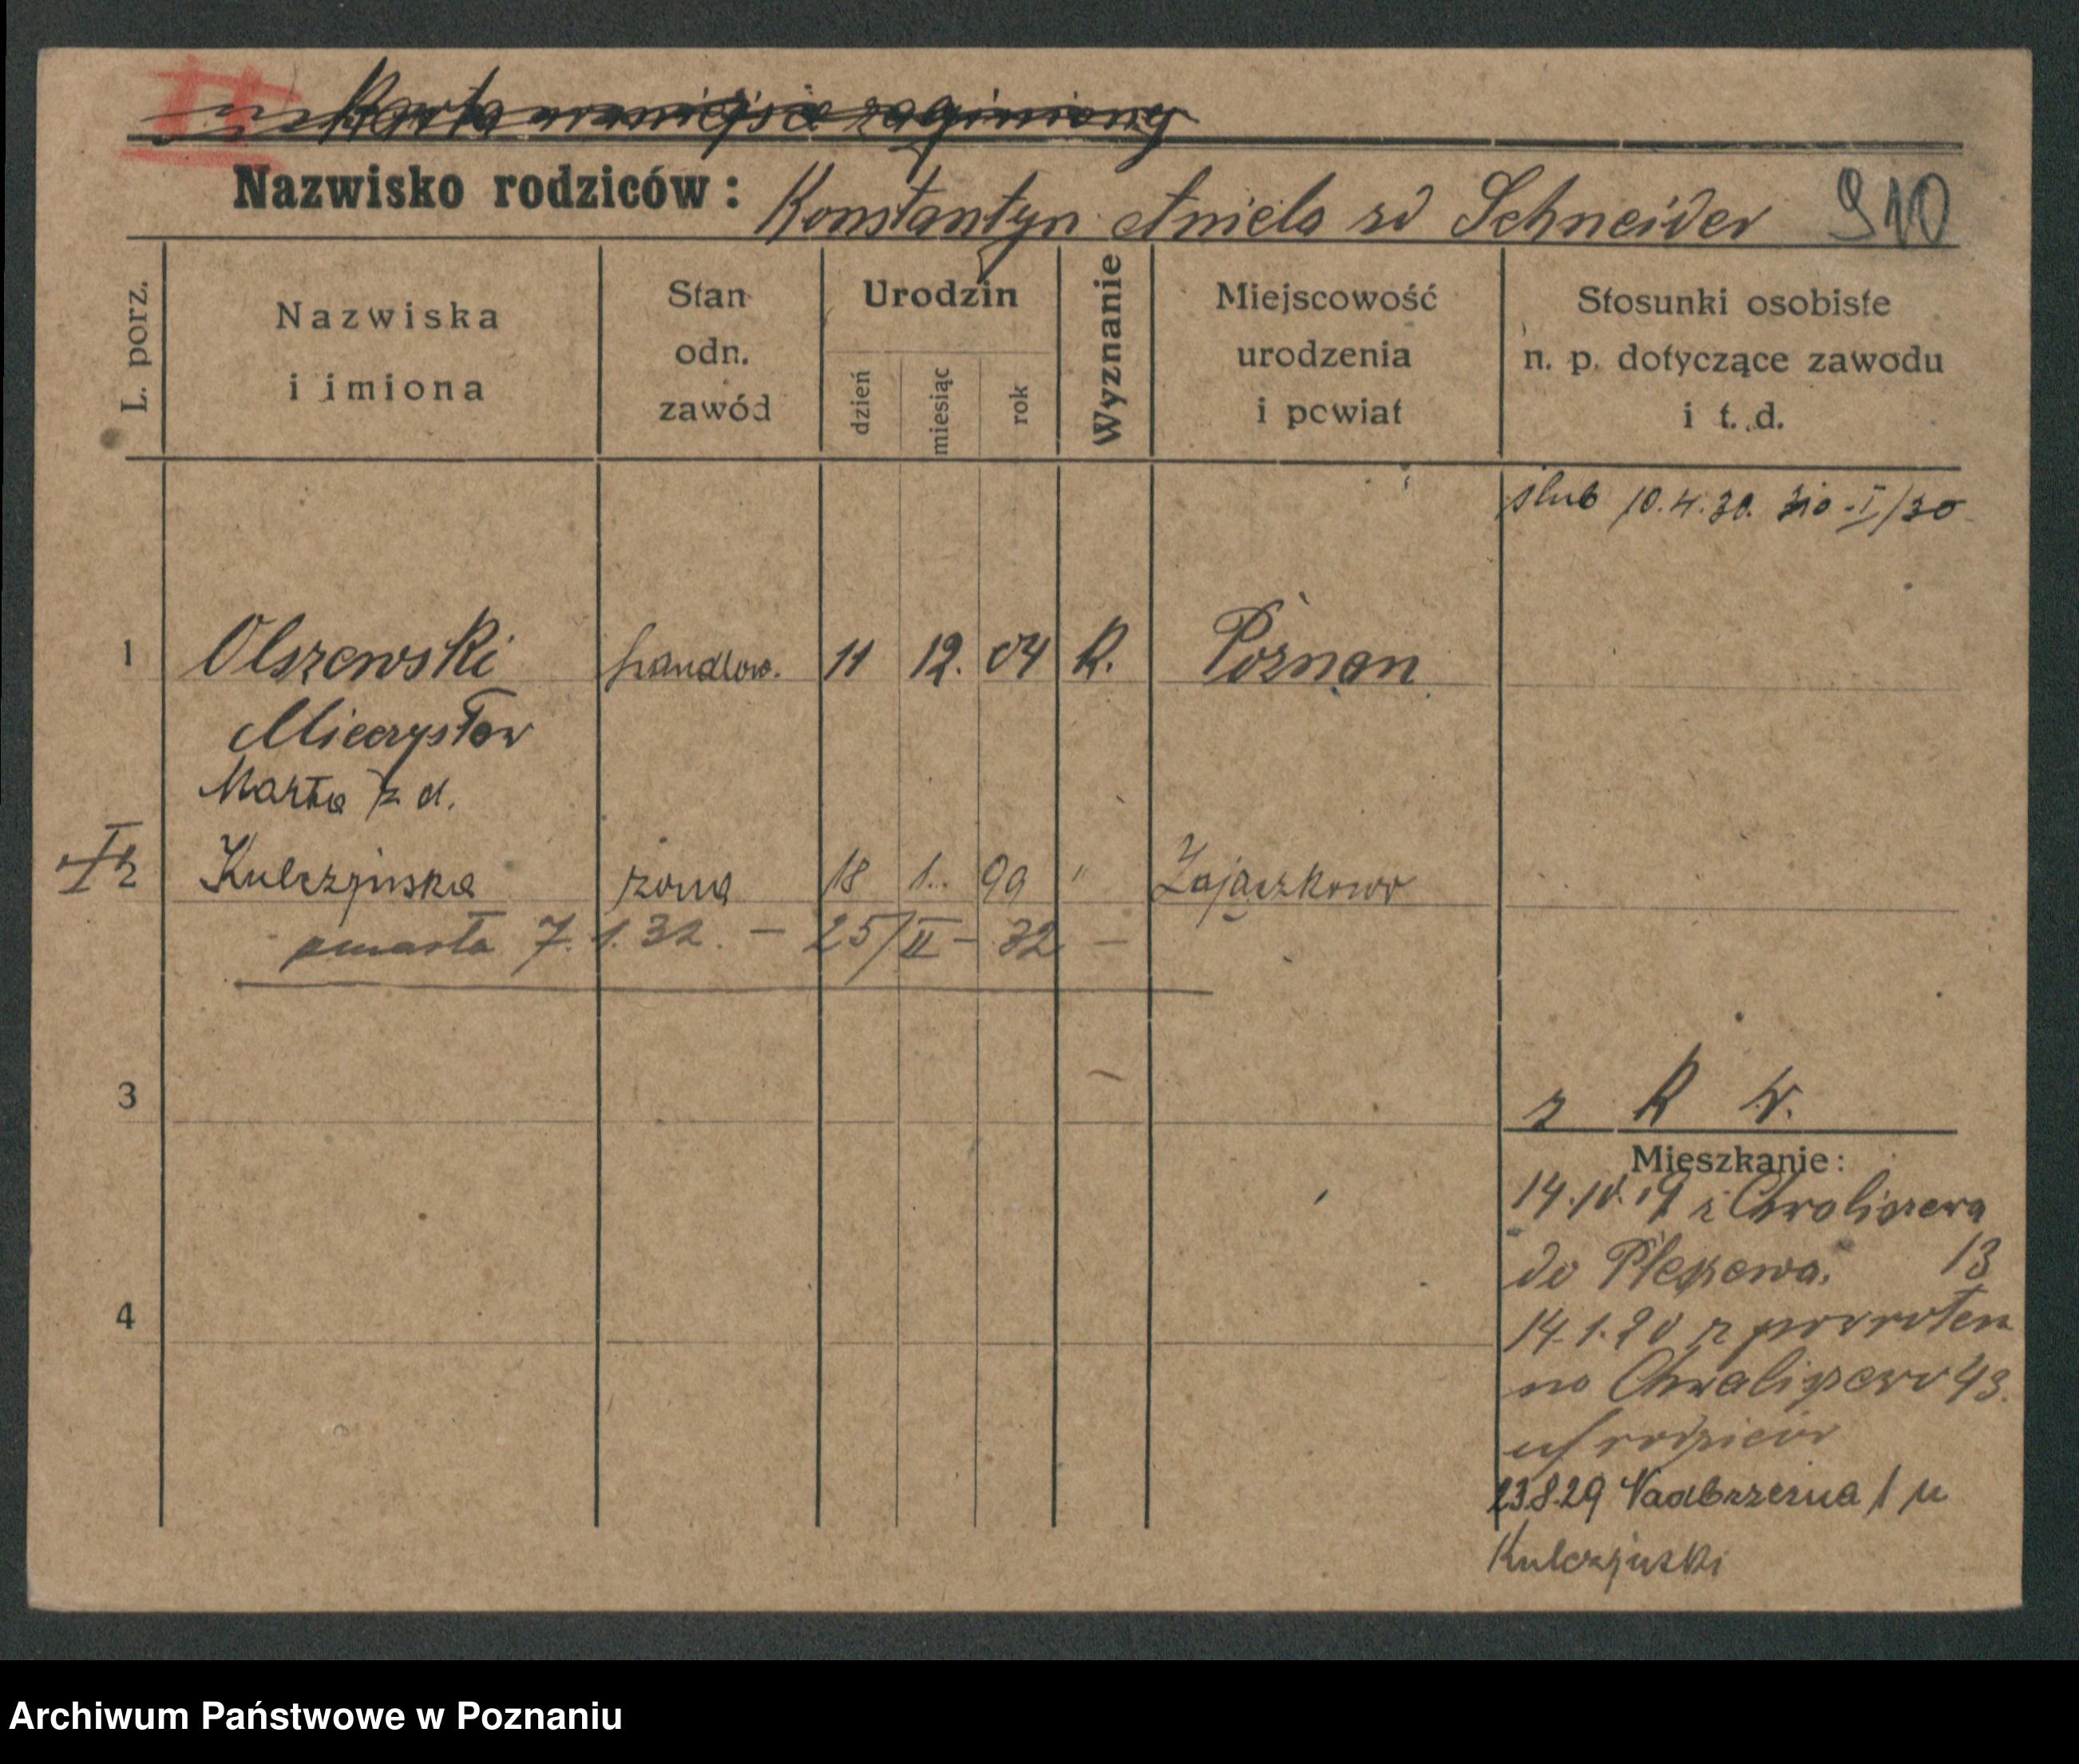 Karta w miejsce zaginionej
Nazwisko rodziców: Konstantyn Aniela zd Schneider 910
L. porz.
Nazwiska i imiona
Stan odn. zawód
Urodzin
dzień miesiąc rok
Wyznanie
Miejscowość urodzenia i powiat
Stosunki osobiste n. p. dotyczące zawodu i t. d.
ślub 10.4.30. 310-I/30
1 Olszewski handlow. 11 12. 04 K. Poznan
Mieczysław
Marta z d.
2 Kulczyńska żona 18 1. 99 " Zajączkowo
zmarła 7.1.32. — 25/II — 32 —
3
z K W.
Mieszkanie:
14.10.19 z Chwaliszewa
do Pleszewa. 13
14.1.20 z powrotem
na Chwaliszewo 43.
u/ rodziców
4
23.8.29 Nadbrzeżna 1 u
Kulczyński
Archiwum Państwowe w Poznaniu